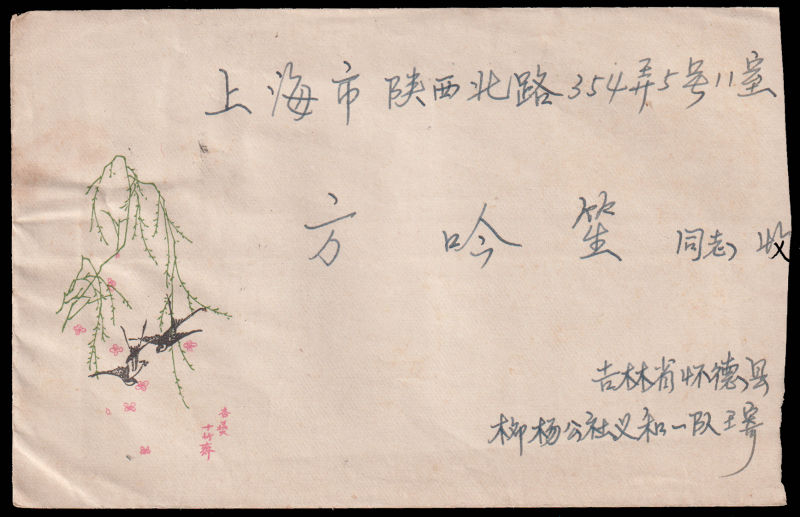 上海市陕西北路354弄5号11室
方吟笙同志收
吉林省怀德县
柳杨公社义和一队王寄
十竹斋